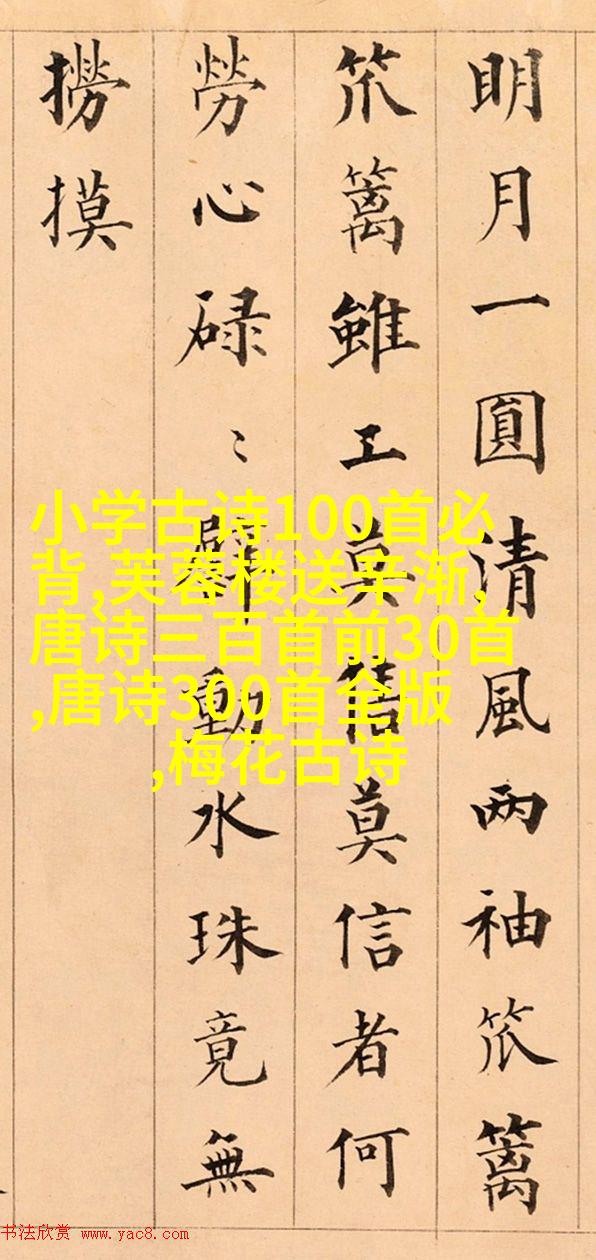 明月一圓清風两袖笊篱
笊篱雖工莫售莫信者何
勞心碌〻動水珠竟無
撈摸
小学古诗100首必
背,芙蓉楼送辛渐,
唐诗三百首前30首
,唐诗300首全版
,梅花古诗
书法欣赏 www.yac8.com